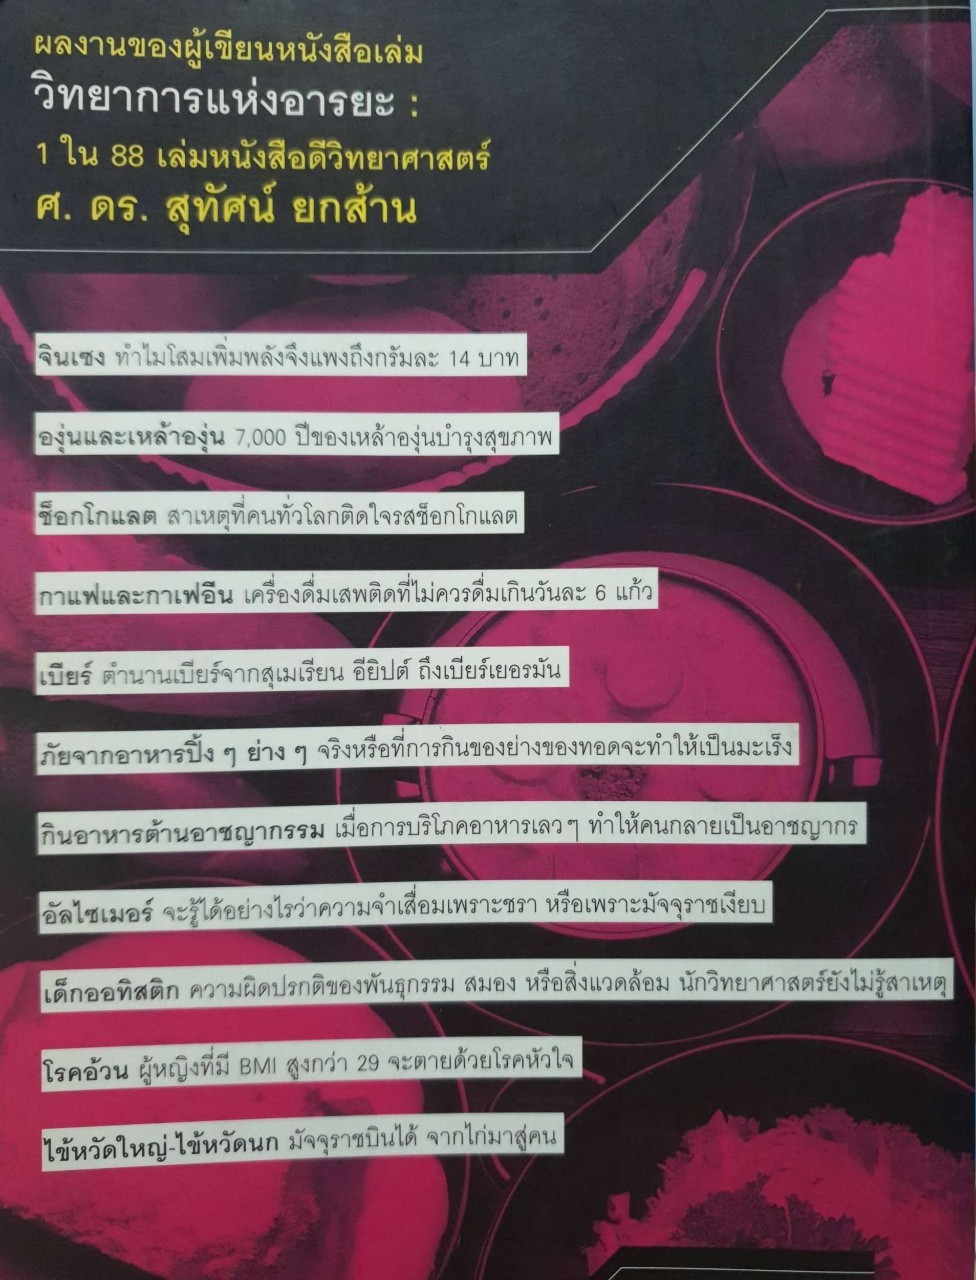 ผลงานของผู้เขียนหนังสือเล่ม
วิทยาการแห่งอารยะ :
1 ใน 88 เล่มหนังสือดีวิทยาศาสตร์
ศ. ดร. สุทัศน์ ยกส้าน
จินเซง ทำไมโสมเพิ่มพลังจึงแพงถึงกรัมละ 14 บาท
องุ่นและเหล้าองุ่น 7,000 ปีของเหล้าองุ่นบำรุงสุขภาพ
ช็อกโกแลต สาเหตุที่คนทั่วโลกติดใจรสช็อกโกแลต
กาแฟและกาเฟอีน เครื่องดื่มเสพติดที่ไม่ควรดื่มเกินวันละ 6 แก้ว
เบียร์ ตำนานเบียร์จากสุเมเรียน อียิปต์ ถึงเบียร์เยอรมัน
ภัยจากอาหารปิ้ง ๆ ย่าง ๆ จริงหรือที่การกินของย่างของทอดจะทำให้เป็นมะเร็ง
กินอาหารต้านอาชญากรรม เมื่อการบริโภคอาหารเลว ๆ ทำให้คนกลายเป็นอาชญากร
อัลไซเมอร์ จะรู้ได้อย่างไรว่าความจำเสื่อมเพราะชรา หรือเพราะมัจจุราชเงียบ
เด็กออทิสติก ความผิดปรกติของพันธุกรรม สมอง หรือสิ่งแวดล้อม นักวิทยาศาสตร์ยังไม่รู้สาเหตุ
โรคอ้วน ผู้หญิงที่มี BMI สูงกว่า 29 จะตายด้วยโรคหัวใจ
ไข้หวัดใหญ่-ไข้หวัดนก มัจจุราชบินได้ จากไก่มาสู่คน